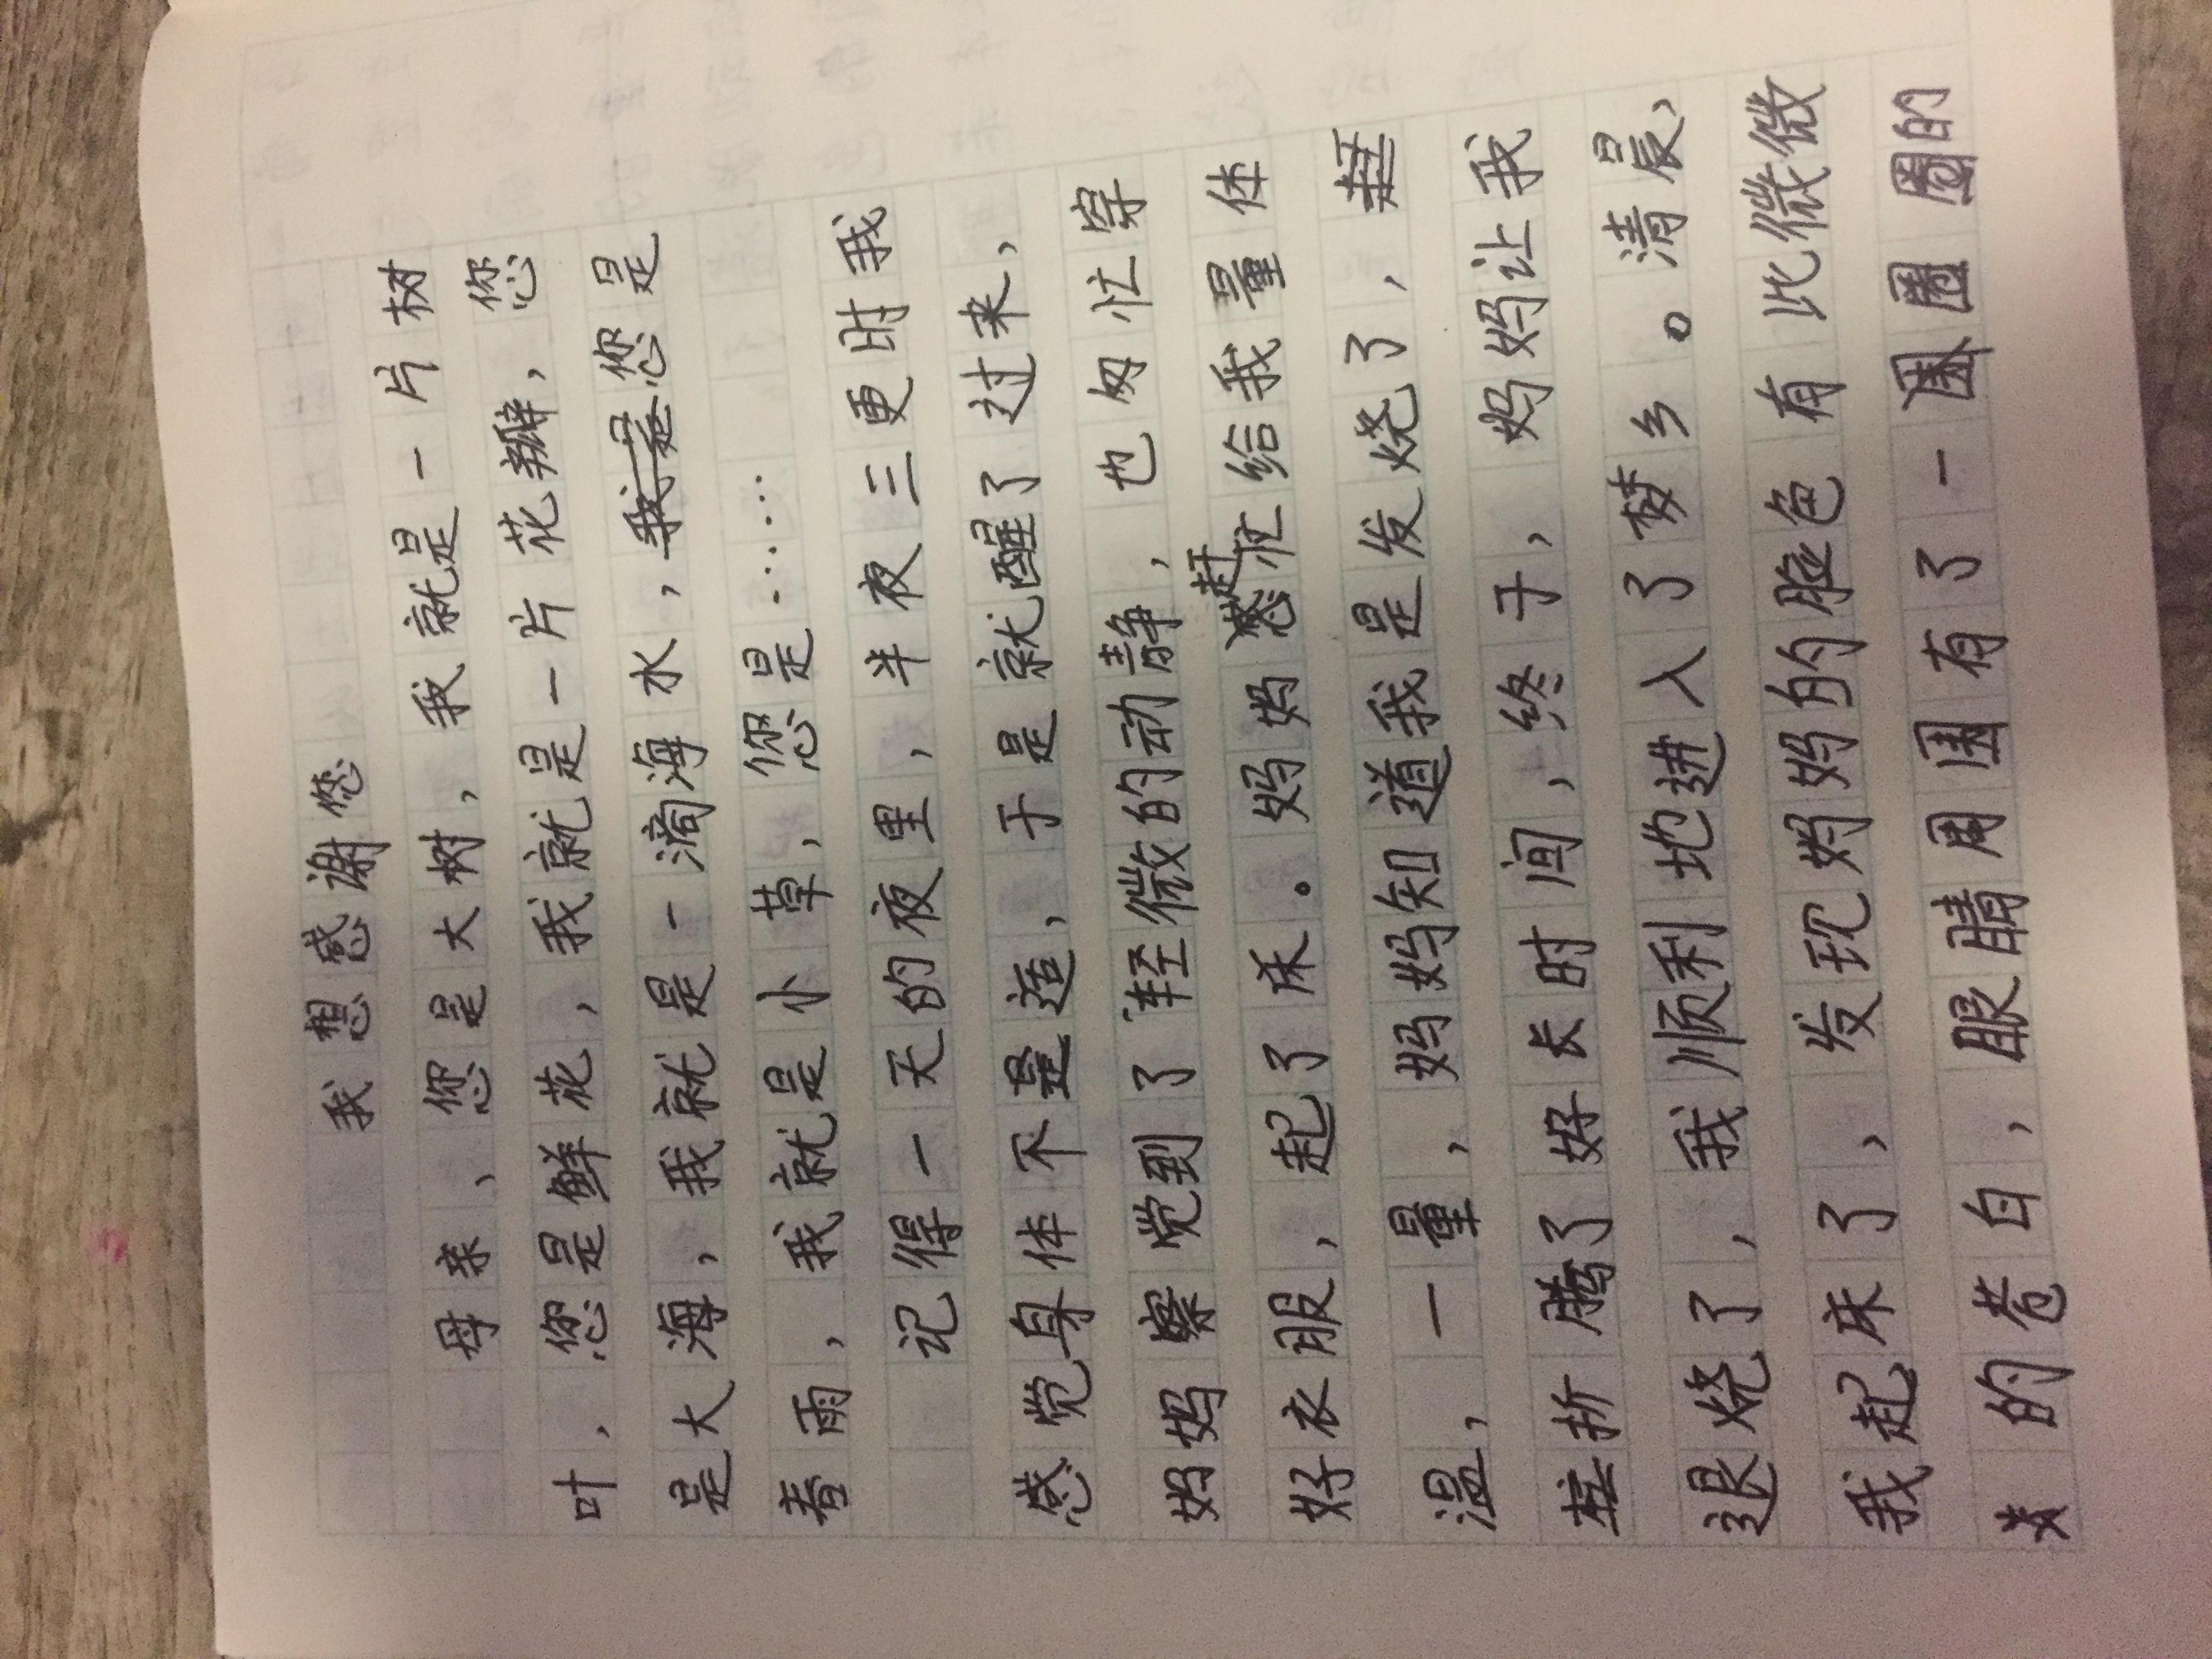 我想感谢您
母亲、您是大树，我就是一片树
叶，您是鲜花，我就是一片花瓣，您
是大海，我就是一滴海水，您是
春雨，我就是小草，您是……
记得一天的夜里，半夜三更时我
感觉身体不是适，于是就醒了过来，
妈妈察觉到了轻微的动静，也匆忙穿
好衣服，起了床。妈妈赶忙给我量体
温，一量，妈妈知道我是发烧了，
折腾了好长时间，终于，妈妈让我
退烧了，我顺利地进入了梦乡。清晨，
我起床了，发现妈妈的脸色有此微微
的苍白，眼睛周围有了一圈圈的